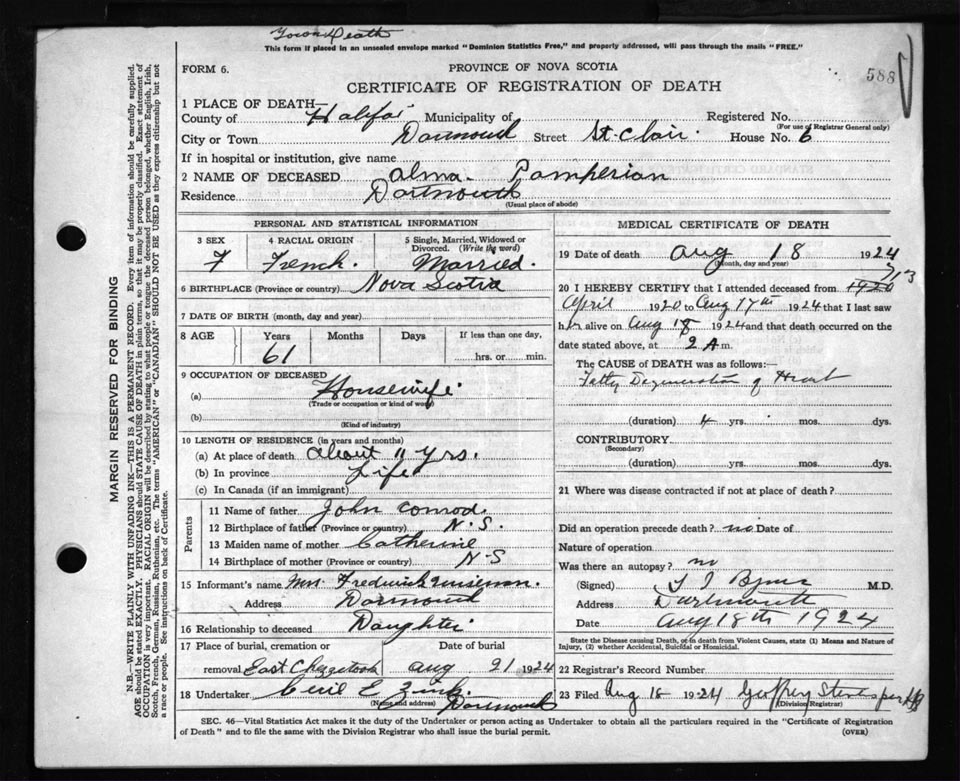 Town Death
This form if placed in an unsealed envelope marked "Dominion Statistics Free," and properly addressed, will pass through the mails "FREE."
FORM 6.
PROVINCE OF NOVA SCOTIA
588
CERTIFICATE OF REGISTRATION OF DEATH
1 PLACE OF DEATH—
County of Halifax Municipality of Registered No.
(For use of Registrar General only)
City or Town Darmouth Street St. Clair. House No. 6
If in hospital or institution, give name
2 NAME OF DECEASED Alma. Pamperian
Residence Dartmouth
(Usual place of abode)
PERSONAL AND STATISTICAL INFORMATION
3 SEX 4 RACIAL ORIGIN 5 Single, Married, Widowed or Divorced. (Write the word)
F French. Married.
6 BIRTHPLACE (Province or country) Nova Scotia
7 DATE OF BIRTH (month, day and year)
8 AGE Years Months Days If less than one day,
61 hrs. or min.
9 OCCUPATION OF DECEASED
(a) Housewife
(Trade or occupation or kind of work)
(b)
(Kind of industry)
10 LENGTH OF RESIDENCE (in years and months)
(a) At place of death about 11 yrs.
(b) In province Life
(c) In Canada (if an immigrant)
Parents
11 Name of father John Conrod.
12 Birthplace of father (Province or country) N.S.
13 Maiden name of mother Catherine
14 Birthplace of mother (Province or country) N-S
15 Informant's name Mrs. Frederick
Address Darmouth
16 Relationship to deceased Daughter
17 Place of burial, cremation or Date of burial
removal East Chezetcook Aug 21 1924
18 Undertaker Cecil E Zink.
(Name and address) Darmouth
MEDICAL CERTIFICATE OF DEATH
19 Date of death Aug 18 1924
(Month, day and year)
20 I HEREBY CERTIFY that I attended deceased from 1920
7/13
April 1920 to Aug 17th 1924 that I last saw
her alive on Aug 18 1924 and that death occurred on
date stated above, at 2 A m.
The CAUSE of DEATH was as follows:
Fatty Degeneration of Heart
(duration) 4 yrs. mos. dys.
CONTRIBUTORY
(Secondary)
(duration) yrs. mos. dys.
21 Where was disease contracted if not at place of death?
Did an operation precede death? no Date of
Nature of operation
Was there an autopsy? no
(Signed) M.D.
Address Dartmouth
Date Aug 18th 1924
State the Disease causing Death, or in death from Violent Causes, state (1) Means and Nature of Injury, (2) whether Accidental, Suicidal or Homicidal.
22 Registrar's Record Number
23 Filed Aug 18 1924 Geoffrey
(Division Registrar)
SEC. 46—Vital Statistics Act makes it the duty of the Undertaker or person acting as Undertaker to obtain all the particulars required in the "Certificate of Registration
of Death" and to file the same with the Division Registrar who shall issue the burial permit.
(OVER)
MARGIN RESERVED FOR BINDING
N.B.—WRITE PLAINLY WITH UNFADING INK—THIS IS A PERMANENT RECORD. Every item of information should be carefully supplied.
AGE should be stated EXACTLY. PHYSICIANS should STATE CAUSE OF DEATH in plain terms, so that it may be properly classified. Exact statement of
OCCUPATION is very important. RACIAL ORIGIN will be described by stating to what people or tongue the deceased person belonged, whether English, Irish,
Scotch, French, German, Russian, Ruthenian, etc. The terms "AMERICAN" or "CANADIAN" SHOULD NOT BE USED as they express citizenship but not
a race or people. See instructions on back of Certificate.